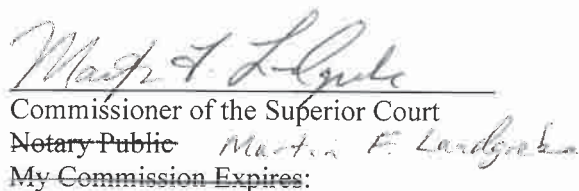 Martin F. Landgrebe
Commissioner of the Superior Court
Notary Public Martin F. Landgrebe
My Commission Expires: